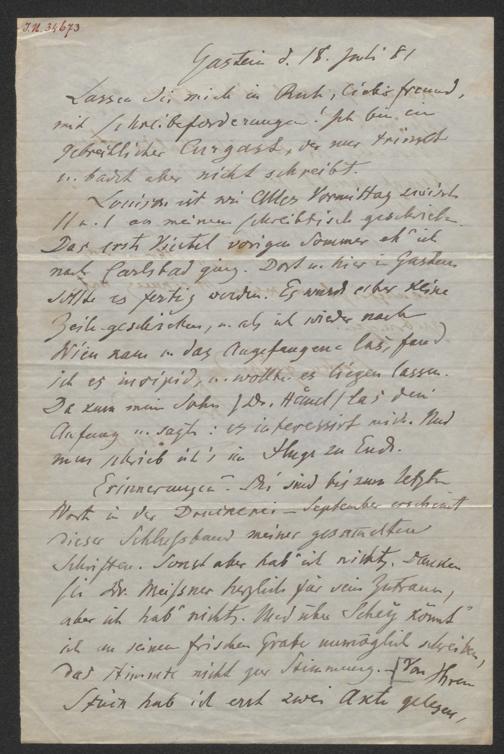 J.N. 34673
Gastein d. 18. Juli 81
Lassen Sie mich in Ruh, lieber Freund,
mit Schreibeforderungen! Ich bin ein
gebrechlicher Curgast, der nur trinkt
u. badet aber nicht schreibt.
Louison ist wie Alles Vormittag zwisch
11 u. 1 an meinem Schreibtisch geschrieben.
Das erste Viertel vorigen Sommer eh' ich
nach Carlsbad ging. Dort u. hier in Gastein
sollte es fertig werden. Es wurd aber keine
Zeile geschrieben, u. als ich wieder nach
Wien kam u. das Angefangene las, fand
ich es insipid, u. wollte es liegen lassen.
Da kam mein Sohn / Dr. / las den
Anfang u. sagte: es interessirt mich. Und
nun schrieb ich's im Fluge zu Ende.
Erinnerungen? Die sind bis zum letzten
Wort in der Druckerei – September erscheint
dieser Schlußband meiner gesammelten
Schriften. Sonst aber hab' ich nichts. Danken
Sie Dr. Meißner herzlich für sein Zutraun,
aber ich hab' nichts. Und über könnt'
ich an seinem frischen Grabe unmöglich schreiben,
das stimmte nicht zur Stimmung. – Von Ihrem
Stück hab ich erst zwei Akte gelesen,